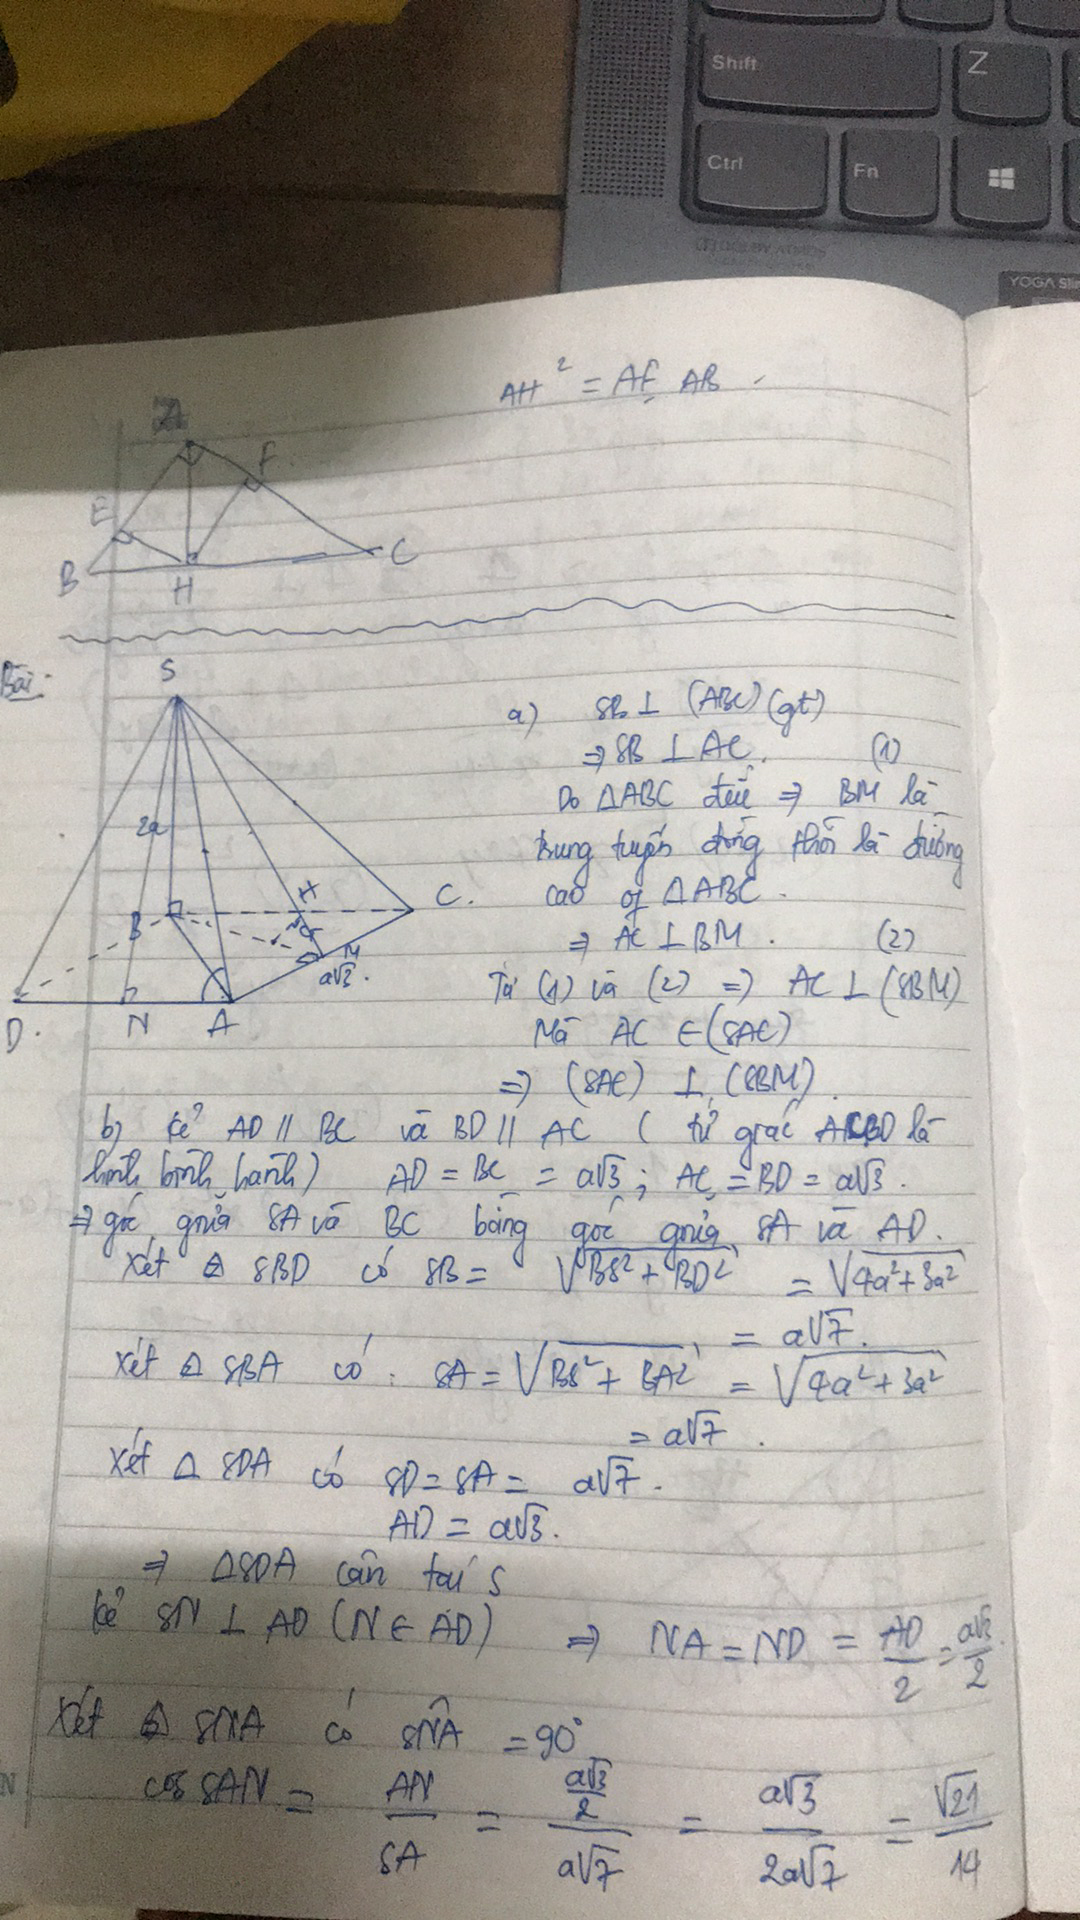 Shift
Z
Ctrl
Fn
DOLBY ATMOS
YOGA Slim
AH² = AE. AB
A
F
E
B
H
C
Bài:
S
2a
B
H
C.
M
a√3.
D.
N
A
a) SB ⊥ (ABC) (gt)
⇒ SB ⊥ AC. (1)
Do ΔABC đều ⇒ BM là
trung tuyến đồng thời là đường
cao of ΔABC.
⇒ AC ⊥ BM. (2)
Từ (1) và (2) ⇒ AC ⊥ (SBM)
Mà AC ∈ (SAC)
⇒ (SAC) ⊥ (SBM).
b) Kẻ AD // BC và BD // AC ( tứ giác ACBD là
hình bình hành) AD = BC = a√3 ; AC = BD = a√3.
⇒ góc giữa SA và BC bằng góc giữa SA và AD.
Xét Δ SBD có SB = √BS² + BD² = √4a² + 3a²
= a√7.
Xét Δ SBA có : SA = √BS² + BA² = √4a² + 3a²
= a√7.
Xét Δ SDA có SD = SA = a√7.
AD = a√3.
⇒ ΔSDA cân tại S
Kẻ SN ⊥ AD (N ∈ AD) ⇒ NA = ND = AD/2 = a√3/2.
Xét Δ SNA có SNA = 90°
cos SAN = AN/SA = (a√3/2)/(a√7) = a√3/2a√7 = √21/14